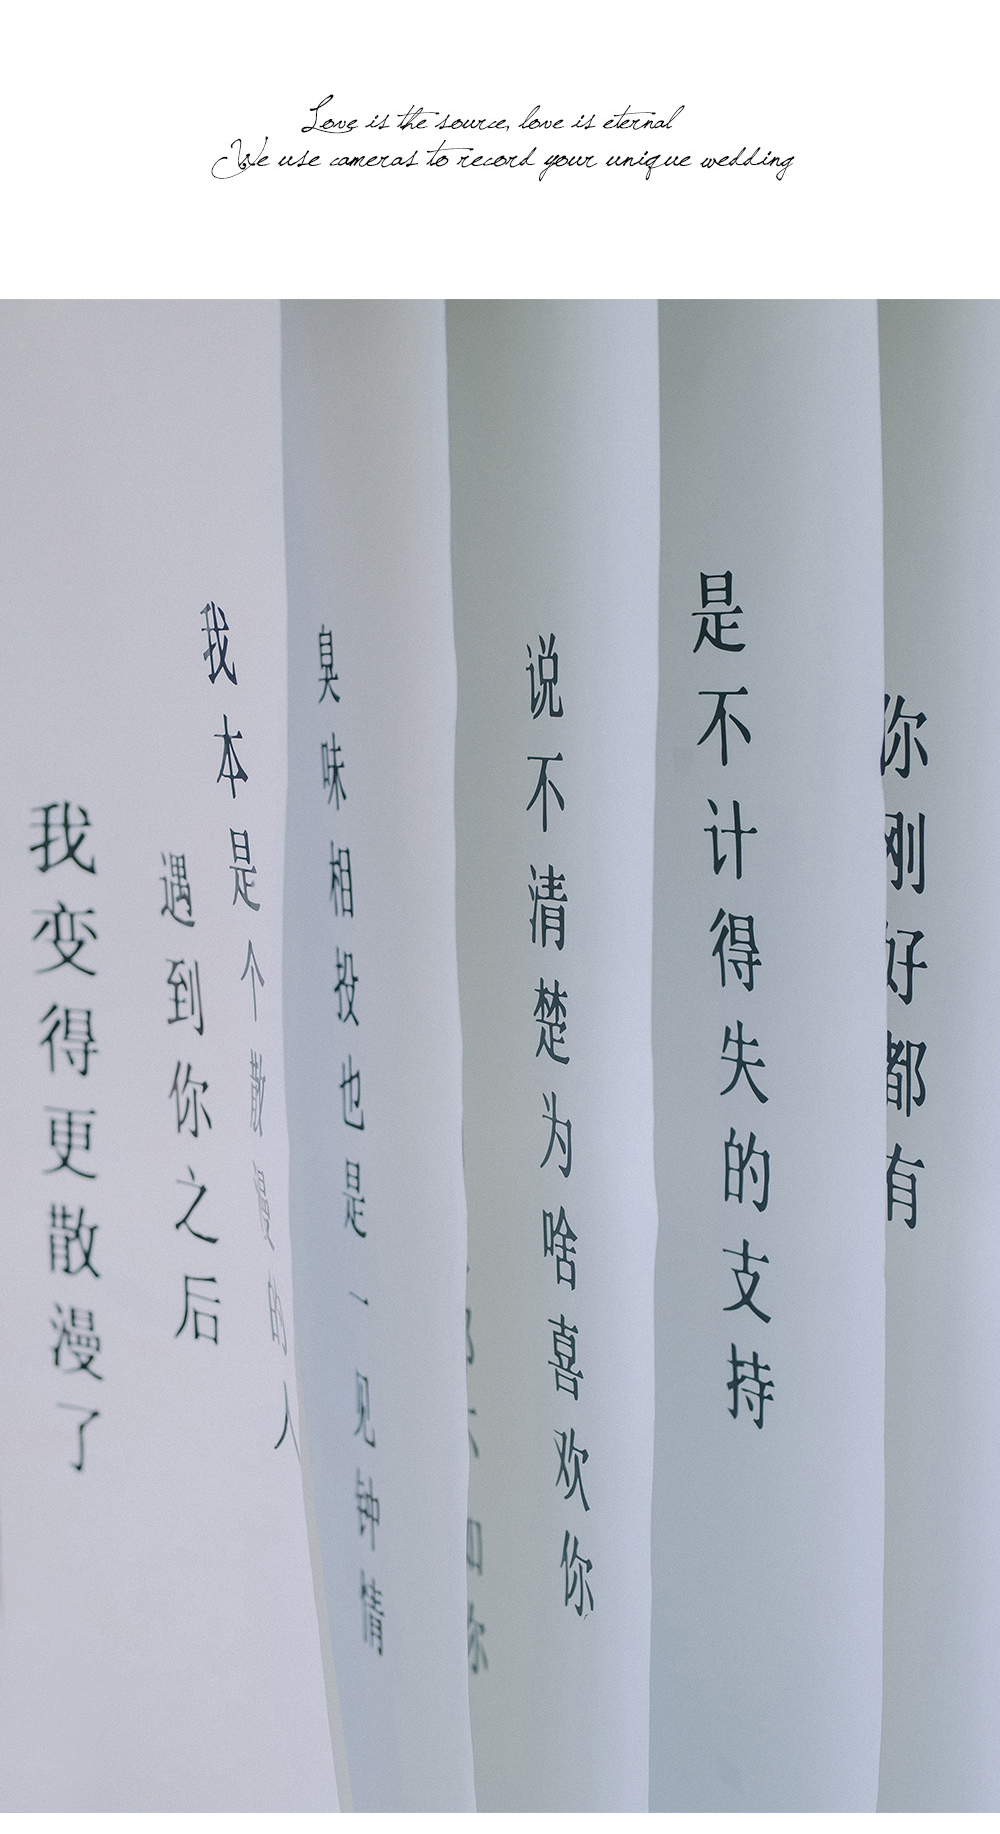 Love is the source, love is eternal
We use cameras to record your unique wedding
我本是个散漫的人
遇到你之后
我变得更散漫了
臭味相投也是一见钟情
说不清楚为啥喜欢你
是不计得失的支持
你刚好都有